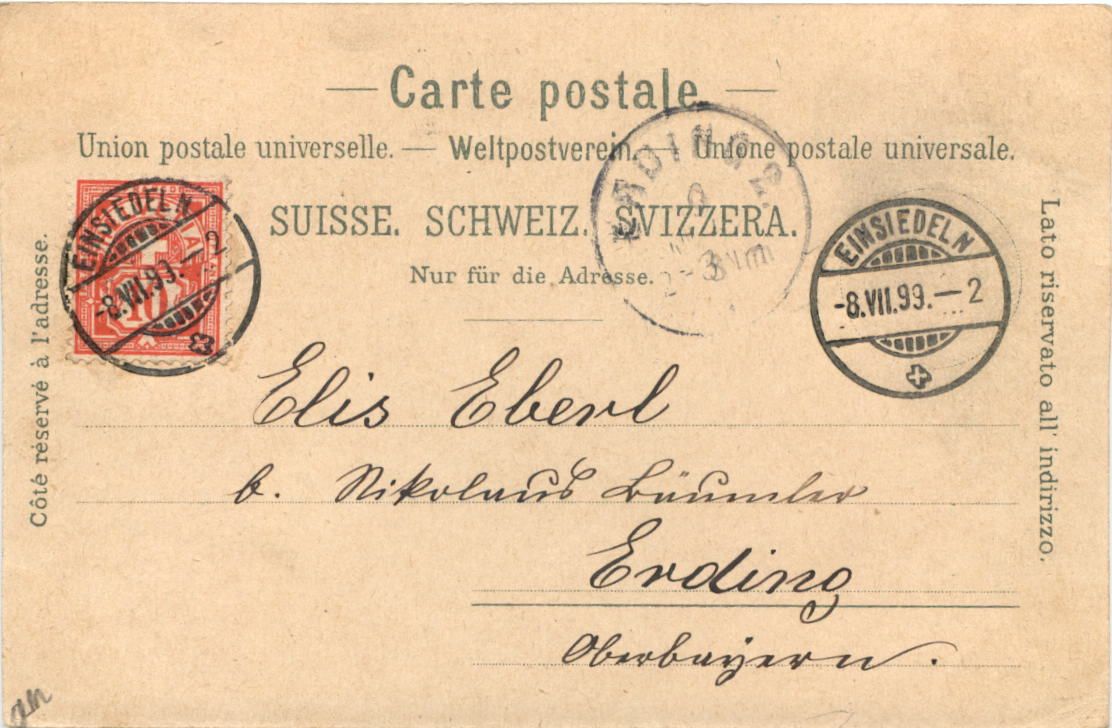 Carte postale
Union postale universelle. — Weltpostverein. — Unione postale universale.
SUISSE. SCHWEIZ. SVIZZERA.
Nur für die Adresse.
Côté réservé à l'adresse.
Lato riservato all' indirizzo.
EINSIEDELN
-8.VII.99.-2
10
ERDING 2.
EINSIEDELN
-8.VII.99.-2
Elis Eberl
b. Nikolaus Bäumler
Erding
Oberbayern.